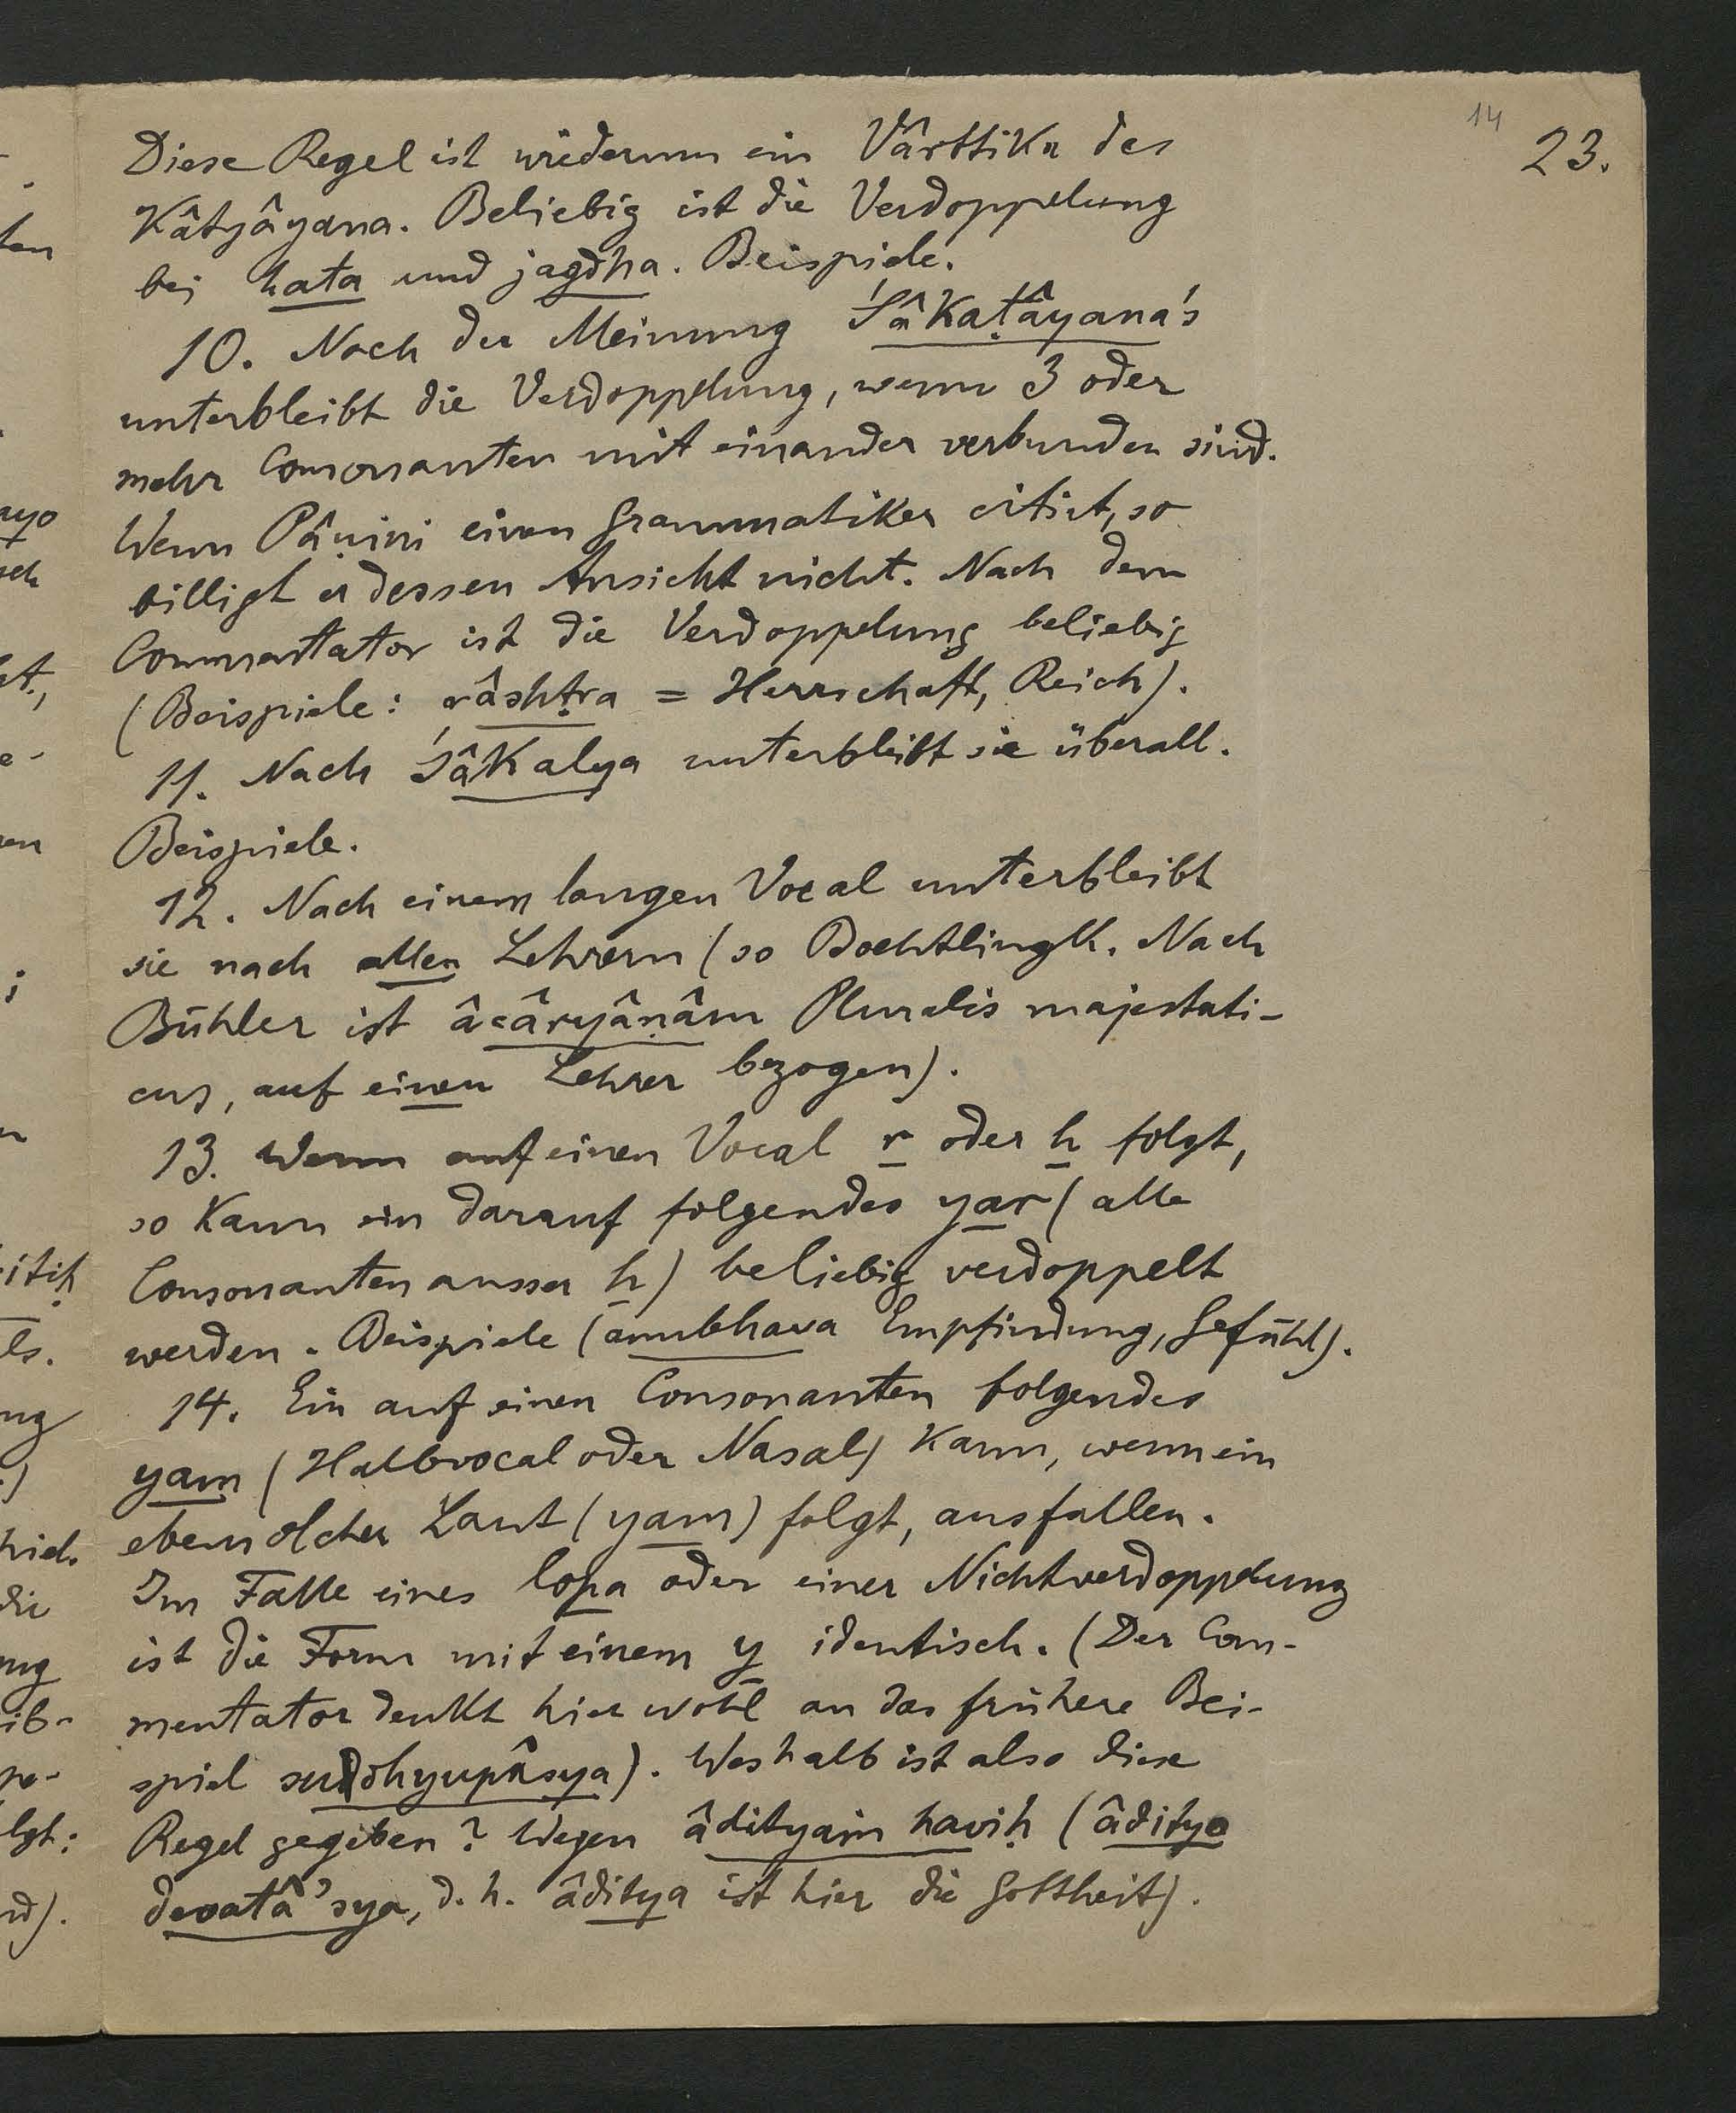 14
23.
Diese Regel ist wiederum ein Vârttika des
Kâtyâyana. Beliebig ist die Verdoppelung
bei hata und jagdha. Beispiele.
10. Nach der Meinung Śâkaṭâyana's
unterbleibt die Verdoppelung, wenn 3 oder
mehr Consonanten mit einander verbunden sind.
Wenn Pâṇini einen Grammatiker citirt, so
billigt er dessen Ansicht nicht. Nach dem
Commentator ist die Verdoppelung beliebig
(Beispiele: râshṭra = Herrschaft, Reich).
11. Nach Śâkalya unterbleibt sie überall.
Beispiele.
12. Nach einem langen Vocal unterbleibt
sie nach allen Lehrern (so Boehtlingk. Nach
Bühler ist âcâryâṇâm Pluralis majestati-
cus, auf einen Lehrer bezogen).
13. Wenn auf einen Vocal r oder h folgt,
so kann ein darauf folgendes yar (alle
Consonanten ausser h) beliebig verdoppelt
werden. Beispiele (anubhava Empfindung, Gefühl).
14. Ein auf einen Consonanten folgendes
yam (Halbvocal oder Nasal) kann, wenn ein
ebensolcher Laut (yam) folgt, ausfallen.
Im Falle eines lopa oder einer Nichtverdoppelung
ist die Form mit einem y identisch. (Der Com-
mentator denkt hier wohl an das frühere Bei-
spiel sudhyupâsya). Weshalb ist also diese
Regel gegeben? Wegen âdityaṁ haviḥ (âdityo
devatâ 'sya, d. h. âditya ist hier die Gottheit).